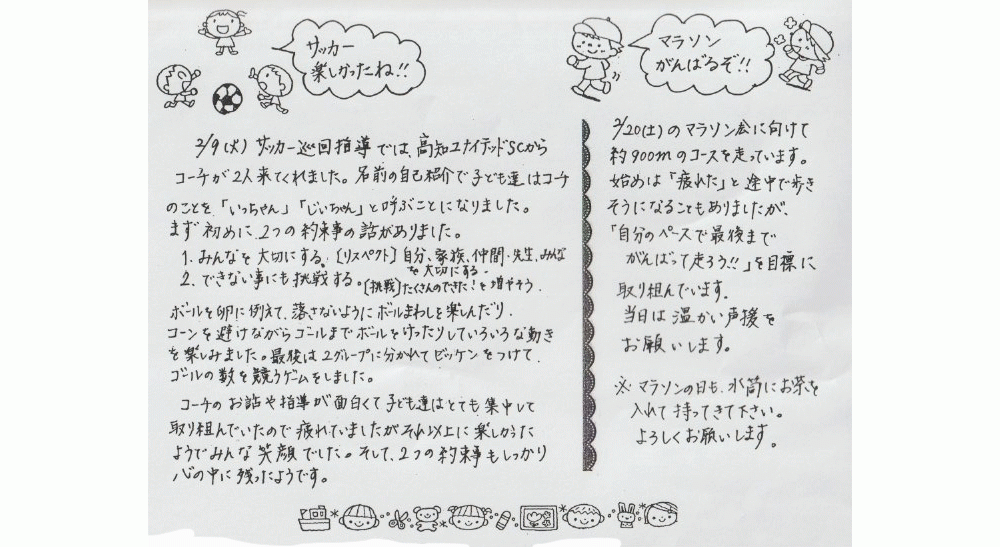 サッカー
楽しかったね!!
2/9(火) サッカー巡回指導では、高知ユナイテッドSCから
コーチが2人来てくれました。名前の自己紹介で子ども達はコーチ
のことを「いっちゃん」「じぃちゃん」と呼ぶことになりました。
まず初めに2つの約束事の話がありました。
1. みんなを大切にする。〔リスペクト〕自分、家族、仲間・先生、みんな
を大切にする。
2. できない事にも挑戦する。〔挑戦〕たくさんのできた!を増やそう。
ボールを卵に例えて、落さないようにボールまわしを楽しんだり、
コーンを避けながらゴールまでボールをけったりしていろいろな動き
を楽しみました。最後は2グループに分かれてビッケンをつけて、
ゴールの数を競うゲームをしました。
コーチのお話や指導が面白くて子ども達はとても集中して
取り組んでいたので疲れていましたがそれ以上に楽しかった
ようでみんな笑顔でした。そして、2つの約束事もしっかり
心の中に残ったようです。
マラソン
がんばるぞ!!
2/20(土)のマラソン会に向けて
約900mのコースを走っています。
始めは「疲れた」と途中で歩き
そうになることもありましたが、
「自分のペースで最後まで
がんばって走ろう!!」を目標に
取り組んでいます。
当日は温かい声援を
お願いします。
※マラソンの日も、水筒にお茶を
入れて持ってきて下さい。
よろしくお願いします。